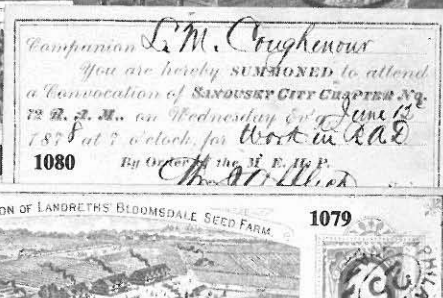 Companion L. M. Coughenour
You are hereby SUMMONED to attend
a Convocation of SANDUSKY CITY CHAPTER No.
72 R. A. M., on Wednesday Ev'g June 12
1878 at 7 o'clock, for Work in R A D
1080 By Order of the M. E. H. P.
ON OF LANDRETHS BLOOMSDALE SEED FARM.
1079
PHILA